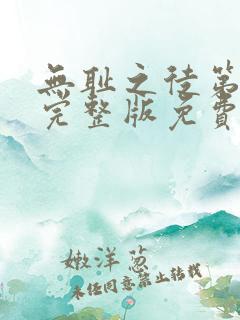 無耻之徒第
完整版免費
嫩洋葱
未任同意禁止转载